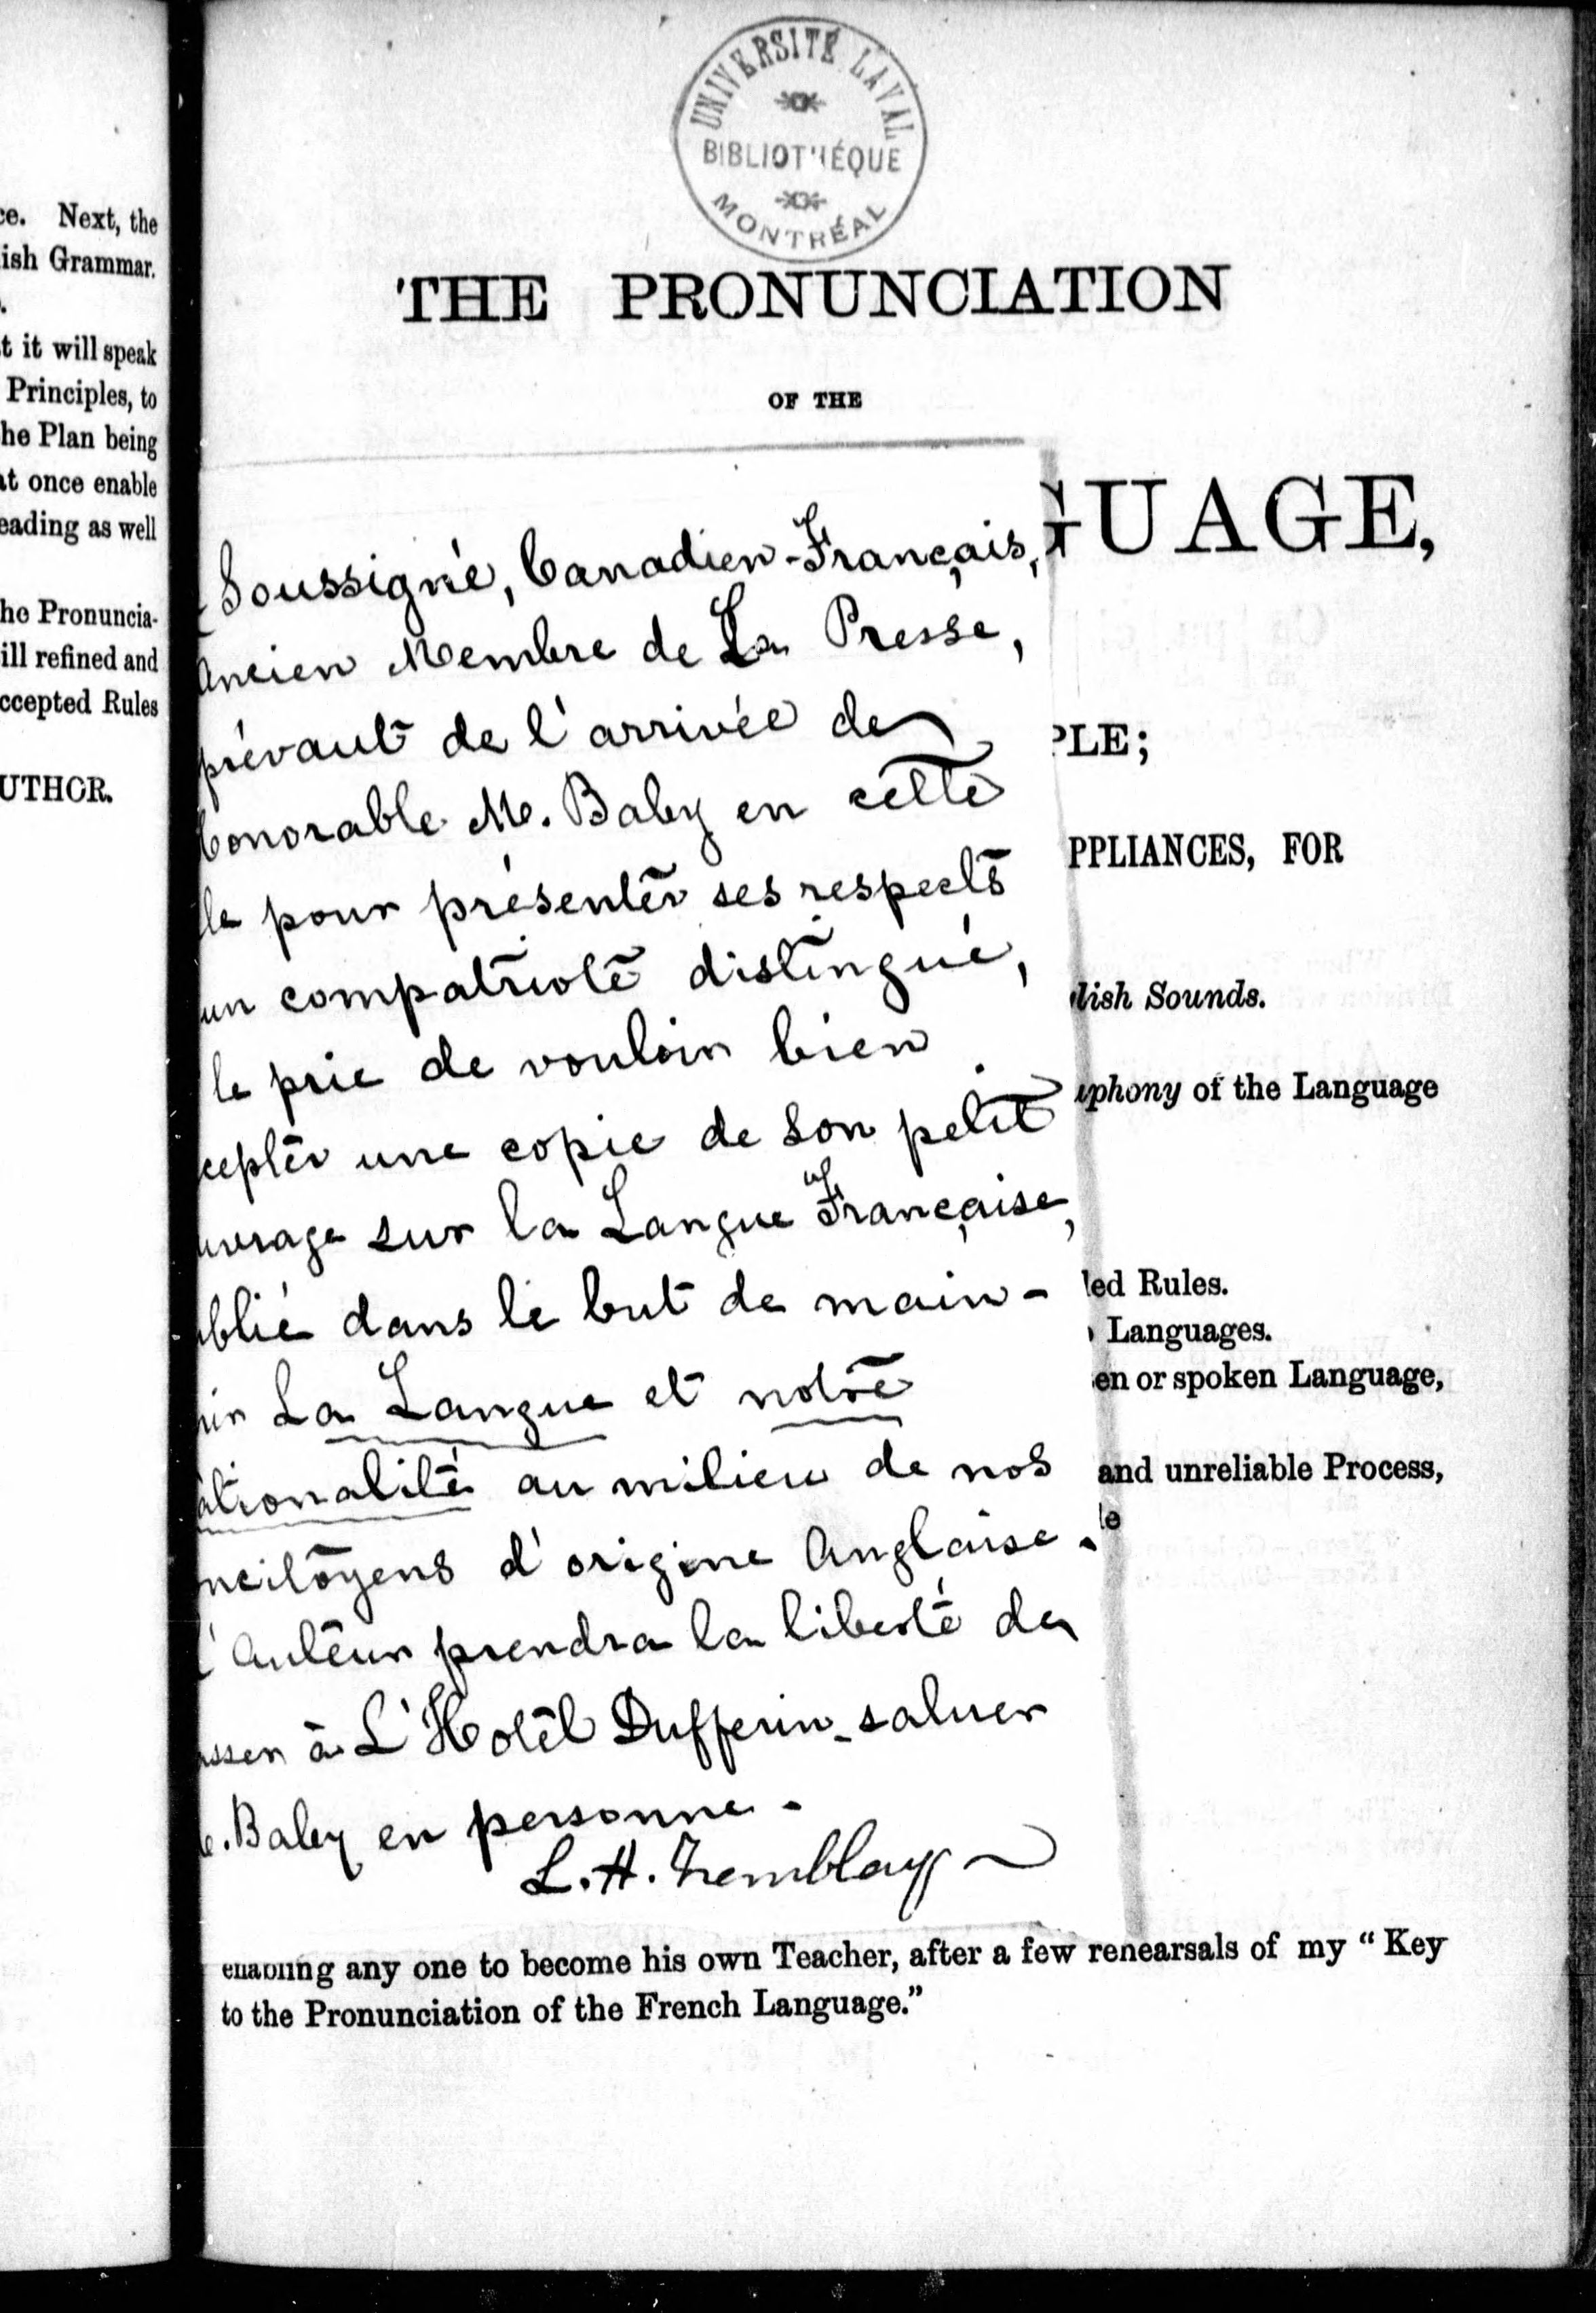 ce. Next, the
ish Grammar.
t it will speak
Principles, to
he Plan being
at once enable
eading as well
he Pronuncia-
ill refined and
ccepted Rules
UTHOR.
UNIVERSITÉ LAVAL
BIBLIOTHÉQUE
MONTRÉAL
THE PRONUNCIATION
OF THE
GUAGE,
PLE;
PPLIANCES, FOR
lish Sounds.
uphony of the Language
led Rules.
Languages.
en or spoken Language,
and unreliable Process,
le
Soussigné, Canadien-Français,
Ancien Membre de La Presse,
prévaut de l'arrivée de
honorable M. Baby en cette
le pour présenter ses respects
un compatriote distingué,
le prie de vouloir bien
cepter une copie de son petit
uvrage sur la Langue Française,
ublié dans le but de main-
nir La Langue et notre
ationalité au milieu de nos
ncitoyens d'origine Anglaise.
l'Auteur prendra la liberté de
asser à L'Hotel Dufferin saluer
. Baby en personne.
L. H. Tremblay
enabling any one to become his own Teacher, after a few rehearsals of my "Key
to the Pronunciation of the French Language."